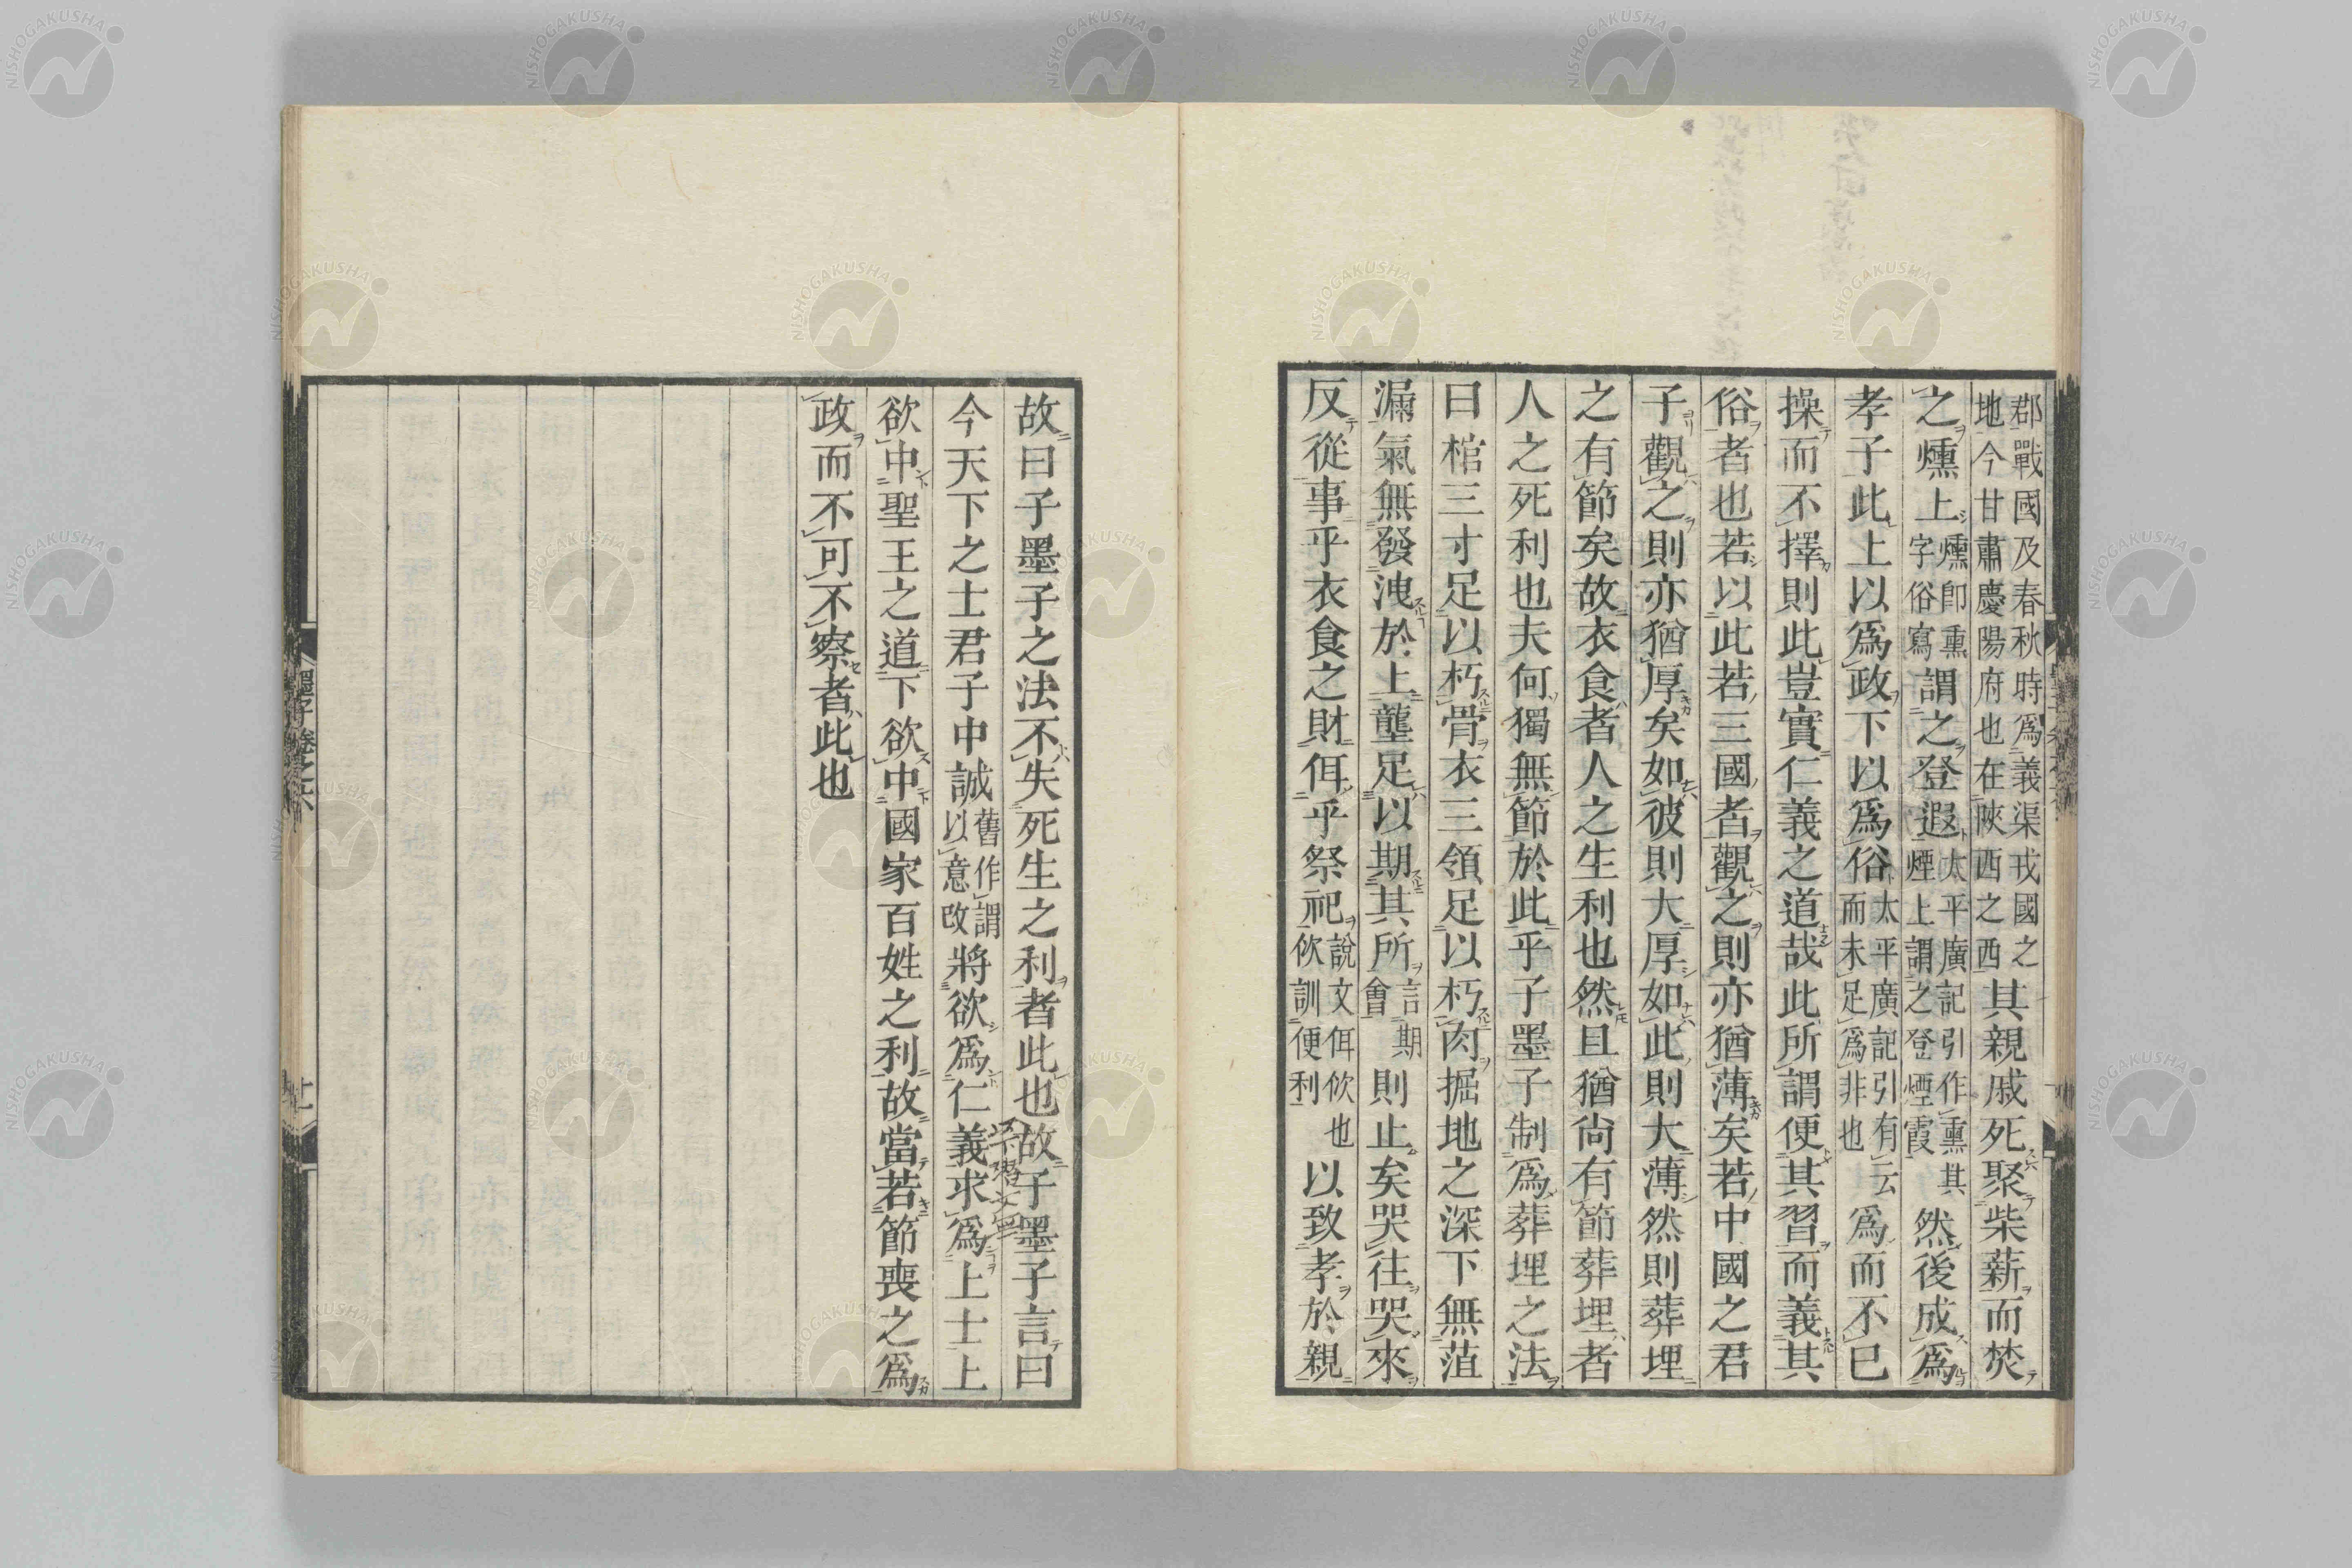 郡戰國及春秋時爲義渠戎國之
地今甘肅慶陽府也在陝西之西
其親戚死聚柴薪而焚
之燻上
燻卽熏
字俗寫
謂之登遐
太平廣記引作熏其
煙上謂之登煙霞
然後成爲
孝子此上以爲政下以爲俗
太平廣記引有云
而未足爲非也
爲而不已
操而不擇則此豈實仁義之道哉此所謂便其習而義其
俗者也若以此若三國者觀之則亦猶薄矣若中國之君
子觀之則亦猶厚矣如彼則大厚如此則大薄然則葬埋
之有節矣故衣食者人之生利也然且猶尙有節葬埋者
人之死利也夫何獨無節於此乎子墨子制爲葬埋之法
曰棺三寸足以朽骨衣三領足以朽肉掘地之深下無菹
漏氣無發洩於上壟足以期其所
言期
會
則止矣哭往哭來
反從事乎衣食之財佴乎祭祀
說文佴佽也
佽訓便利
以致孝於親
故曰子墨子之法不失死生之利者此也故子墨子言曰
今天下之士君子中誠
舊作謂
以意改
將欲爲仁義求爲上士上
欲中聖王之道下欲中國家百姓之利故當若節喪之爲
政而不可不察者此也
墨子卷之六
NISHOGAKUSHA